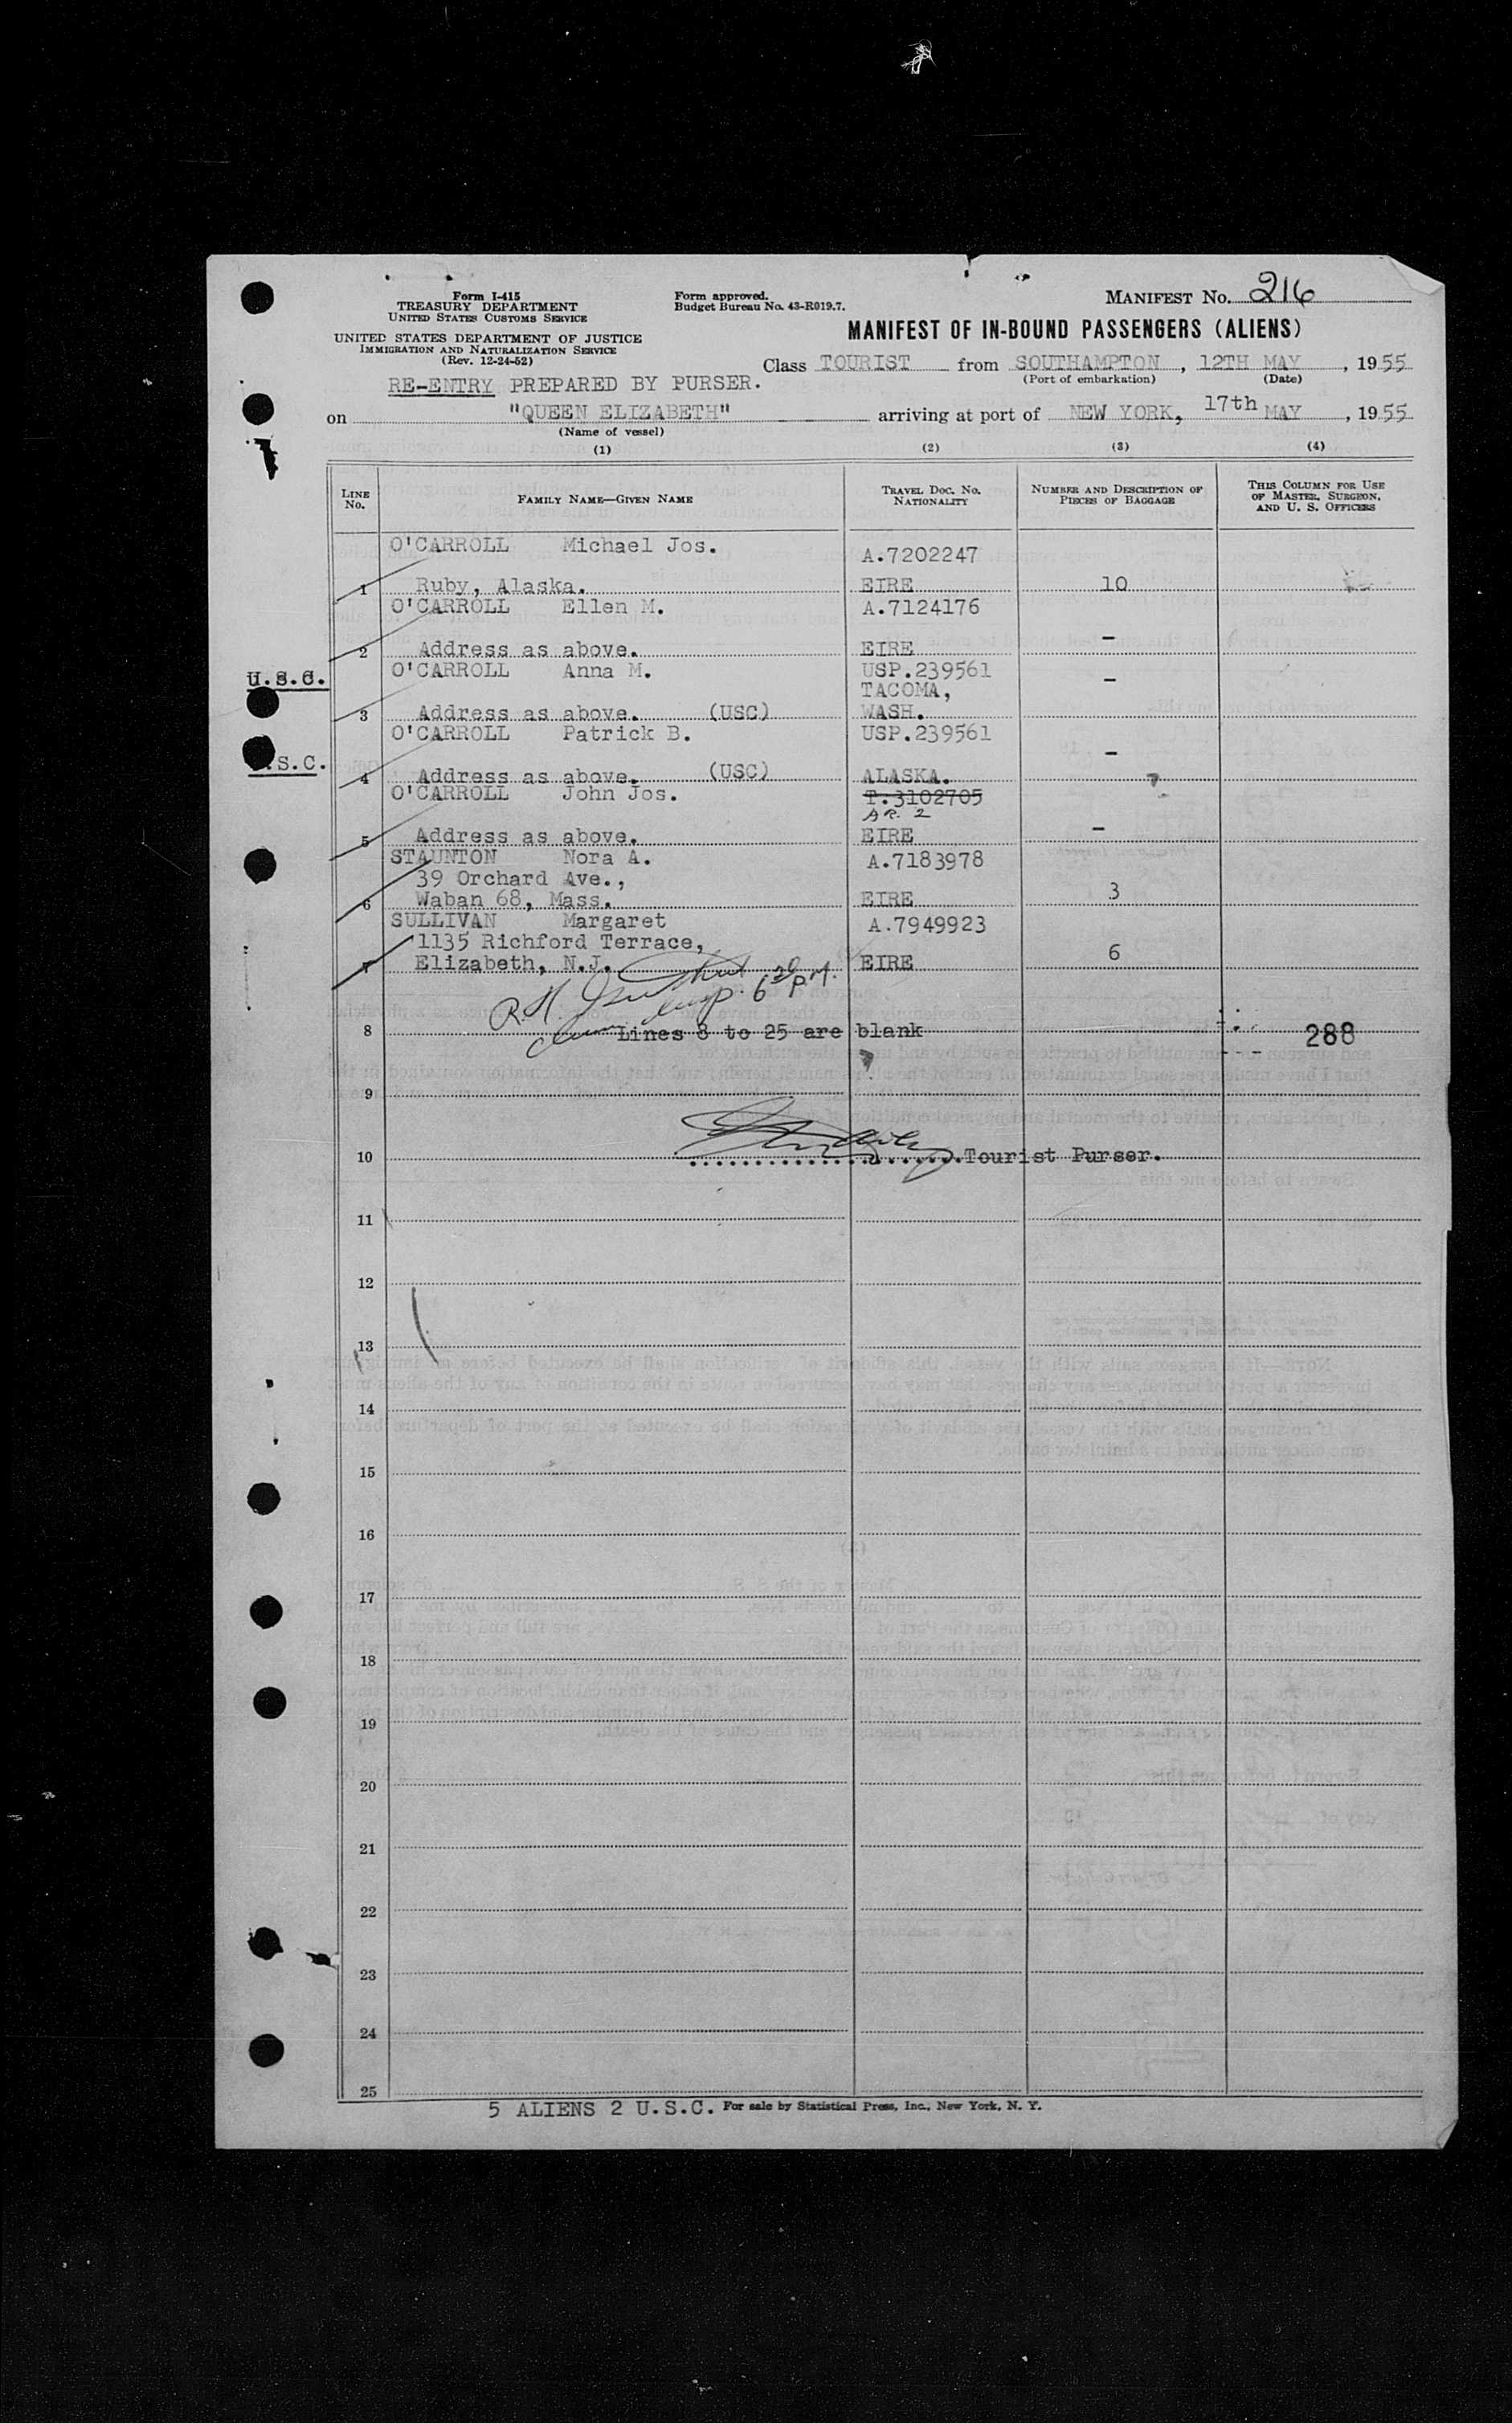 Form I-415
TREASURY DEPARTMENT
UNITED STATES CUSTOMS SERVICE
UNITED STATES DEPARTMENT OF JUSTICE
IMMIGRATION AND NATURALIZATION SERVICE
(Rev. 12-24-52)
Form approved.
Budget Bureau No. 43-R019.7.
MANIFEST NO. 216
MANIFEST OF IN-BOUND PASSENGERS (ALIENS)
Class TOURIST from SOUTHAMPTON, 12TH MAY, 1955
(Port of embarkation) (Date)
RE-ENTRY PREPARED BY PURSER.
on "QUEEN ELIZABETH" arriving at port of NEW YORK, 17th MAY, 1955
(Name of vessel)
(1) (2) (3) (4)
LINE No. FAMILY NAME—GIVEN NAME TRAVEL DOC. NO. NATIONALITY NUMBER AND DESCRIPTION OF PIECES OF BAGGAGE THIS COLUMN FOR USE OF MASTER, SURGEON, AND U. S. OFFICERS
O'CARROLL Michael Jos. A.7202247
1 Ruby, Alaska. EIRE 10
O'CARROLL Ellen M. A.7124176
2 Address as above. EIRE –
U.S.C. O'CARROLL Anna M. USP.239561 –
TACOMA,
3 Address as above. (USC) WASH.
O'CARROLL Patrick B. USP.239561 –
.S.C. 4 Address as above. (USC) ALASKA.
O'CARROLL John Jos. T.3102705
AR. 2
5 Address as above. EIRE –
STAUNTON Nora A. A.7183978
39 Orchard Ave.,
6 Waban 68, Mass. EIRE 3
SULLIVAN Margaret A.7949923
1135 Richford Terrace,
7 Elizabeth, N.J. EIRE 6
R.H. 6 30 P.M.
8 Lines 8 to 25 are blank 288
9
10 Tourist Purser.
11
12
13
14
15
16
17
18
19
20
21
22
23
24
25
5 ALIENS 2 U.S.C. For sale by Statistical Press, Inc., New York, N. Y.